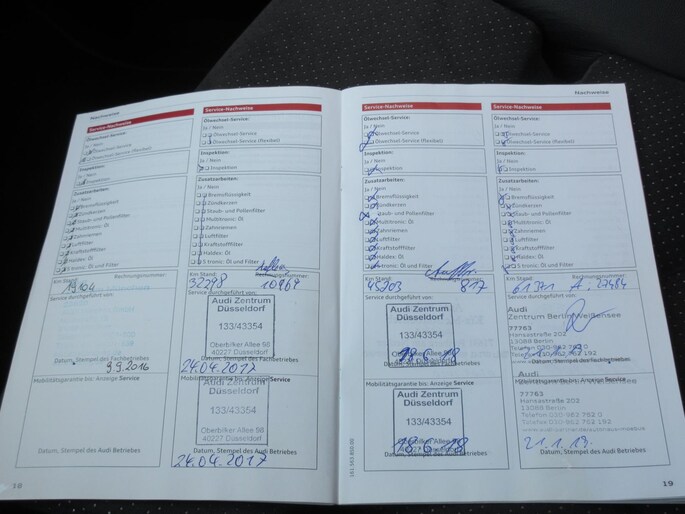 Nachweise
Service-Nachweise
Ölwechsel-Service:
Ja / Nein
Ölwechsel-Service
Ölwechsel-Service (flexibel)
Inspektion:
Ja / Nein
Inspektion
Zusatzarbeiten:
Ja / Nein
Bremsflüssigkeit
Zündkerzen
Staub- und Pollenfilter
Multitronic: Öl
Zahnriemen
Luftfilter
Kraftstofffilter
Haldex: Öl
S tronic: Öl und Filter
Km Stand: Rechnungsnummer:
Service durchgeführt von:
Datum, Stempel des Fachbetriebes
9.9.2016
Mobilitätsgarantie bis: Anzeige Service
Datum, Stempel des Audi Betriebes
18
Service-Nachweise
Ölwechsel-Service:
Ja / Nein
Ölwechsel-Service
Ölwechsel-Service (flexibel)
Inspektion:
Ja / Nein
Inspektion
Zusatzarbeiten:
Ja / Nein
Bremsflüssigkeit
Zündkerzen
Staub- und Pollenfilter
Multitronic: Öl
Zahnriemen
Luftfilter
Kraftstofffilter
Haldex: Öl
S tronic: Öl und Filter
Km Stand:
32298 10969
Service durchgeführt von:
Audi Zentrum
Düsseldorf
133/43354
Oberbilker Allee 56
40227 Düsseldorf
Datum, Stempel des Fachbetriebes
24.04.2017
Mobilitätsgarantie bis: Anzeige Service
Audi Zentrum
Düsseldorf
133/43354
Oberbilker Allee 56
40227 Düsseldorf
Datum, Stempel des Audi Betriebes
24.04.2017
Service-Nachweise
Ölwechsel-Service:
Ja / Nein
Ölwechsel-Service
Ölwechsel-Service (flexibel)
Inspektion:
Ja / Nein
Inspektion
Zusatzarbeiten:
Ja / Nein
Bremsflüssigkeit
Zündkerzen
Staub- und Pollenfilter
Multitronic: Öl
Zahnriemen
Luftfilter
Kraftstofffilter
Haldex: Öl
S tronic: Öl und Filter
Km Stand:
45203 817
Service durchgeführt von:
Audi Zentrum
Düsseldorf
133/43354
Oberbilker Allee
18.6.18
Datum, Stempel des Fachbetriebes
Mobilitätsgarantie bis: Anzeige Service
Audi Zentrum
Düsseldorf
133/43354
Oberbilker Allee
18.6.18
40227 Düsseldorf
Datum, Stempel des Audi Betriebes
Nachweise
Service-Nachweise
Ölwechsel-Service:
Ja / Nein
Ölwechsel-Service
Ölwechsel-Service (flexibel)
Inspektion:
Ja / Nein
Inspektion
Zusatzarbeiten:
Ja / Nein
Bremsflüssigkeit
Zündkerzen
Staub- und Pollenfilter
Multitronic: Öl
Zahnriemen
Luftfilter
Kraftstofffilter
Haldex: Öl
S tronic: Öl und Filter
Km Stand: Rechnungsnummer:
61371 A. 27484
Service durchgeführt von:
Audi
Zentrum Berlin Weißensee
77763
Hansastraße 202
13088 Berlin
Telefon 030-962 792 0
Datum, Stempel des Fachbetriebes
Mobilitätsgarantie bis: Anzeige Service
77763
Hansastraße 202
13088 Berlin
Telefon 030-962 792 0
21.1.19.
Datum, Stempel des Audi Betriebes
19